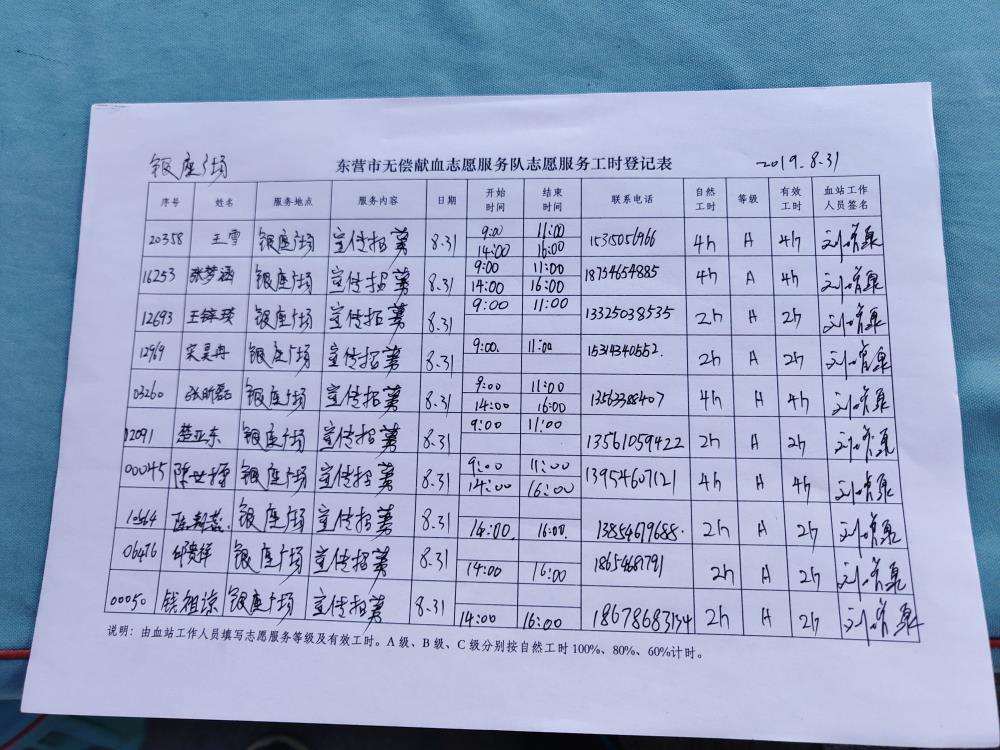 银座广场 东营市无偿献血志愿服务队志愿服务工时登记表 2019.8.31
序号 姓名 服务地点 服务内容 日期 开始时间 结束时间 联系电话 自然工时 等级 有效工时 血站工作人员签名
20358 王雪 银座广场 宣传招募 8.31 9:00 11:00 14:00 16:00 15315056966 4h A 4h
16253 张梦涵 银座广场 宣传招募 8.31 9:00 11:00 14:00 16:00 18754654885 4h A 4h
12693 银座广场 宣传招募 8.31 9:00 11:00 13325038535 2h A 2h
12969 宋昊冉 银座广场 宣传招募 8.31 9:00. 11:00 15314340552. 2h A 2h
03260 银座广场 宣传招募 8.31 9:00 11:00 14:00 16:00 13563388407 4h A 4h
02091 楚亚东 银座广场 宣传招募 8.31 9:00 11:00 13561059422 2h A 2h
00045 陈世源 银座广场 宣传招募 8.31 9:00 11:00 14:00 16:00 13954607121 4h A 4h
银座广场 宣传招募 8.31 14:00. 16:00. 13854679688. 2h A 2h
06476 邱贵祥 银座广场 宣传招募 8.31 14:00 16:00 18654681791 2h A 2h
00050 钱祖谅 银座广场 宣传招募 8.31 14:00 16:00 18678683134 2h A 2h
说明：由血站工作人员填写志愿服务等级及有效工时。A 级、B 级、C 级分别按自然工时 100%、80%、60%计时。